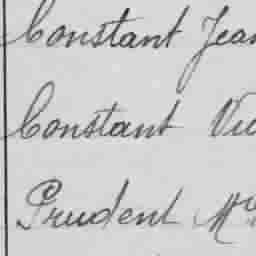 Constant Jean
Constant Vic
Prudent Mie